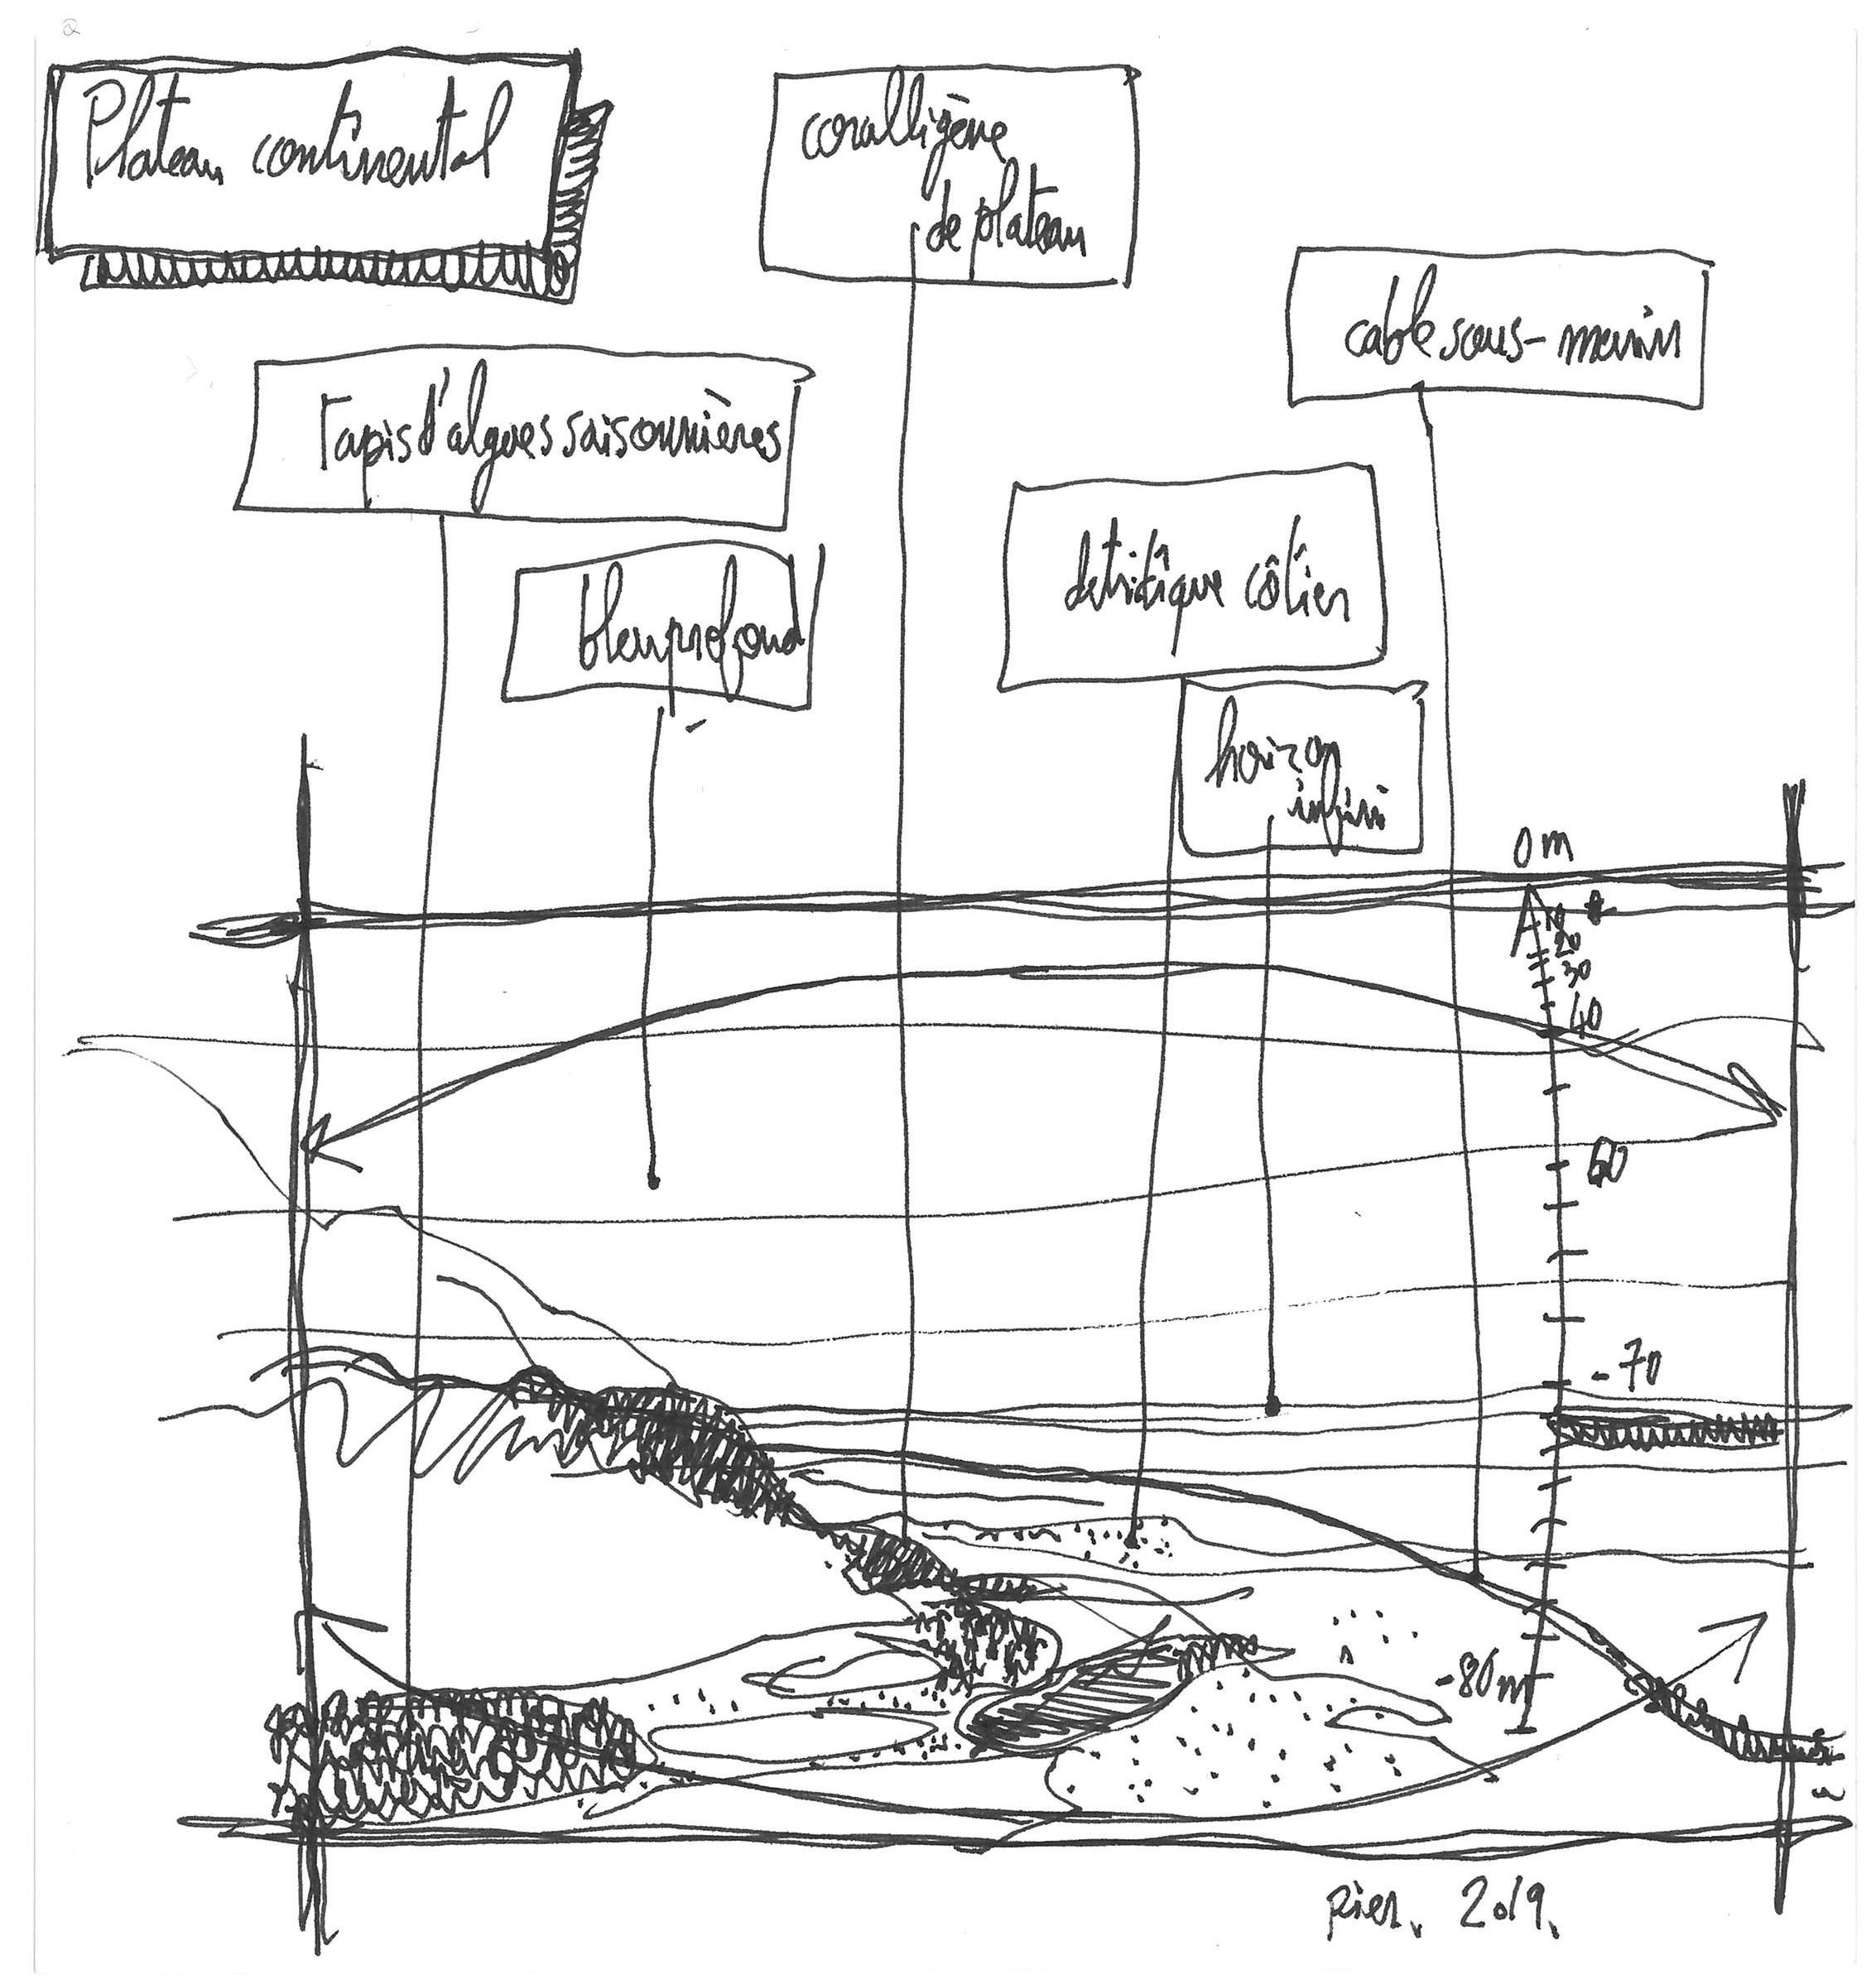 Plateau continental
coralligène
de plateau
cable sous-marin
Tapis d'algues saisonnières
détritique côtier
bleu profond
horizon
infini
0 m
10
20
30
40
60
-70
-80 m
pier. 2019.